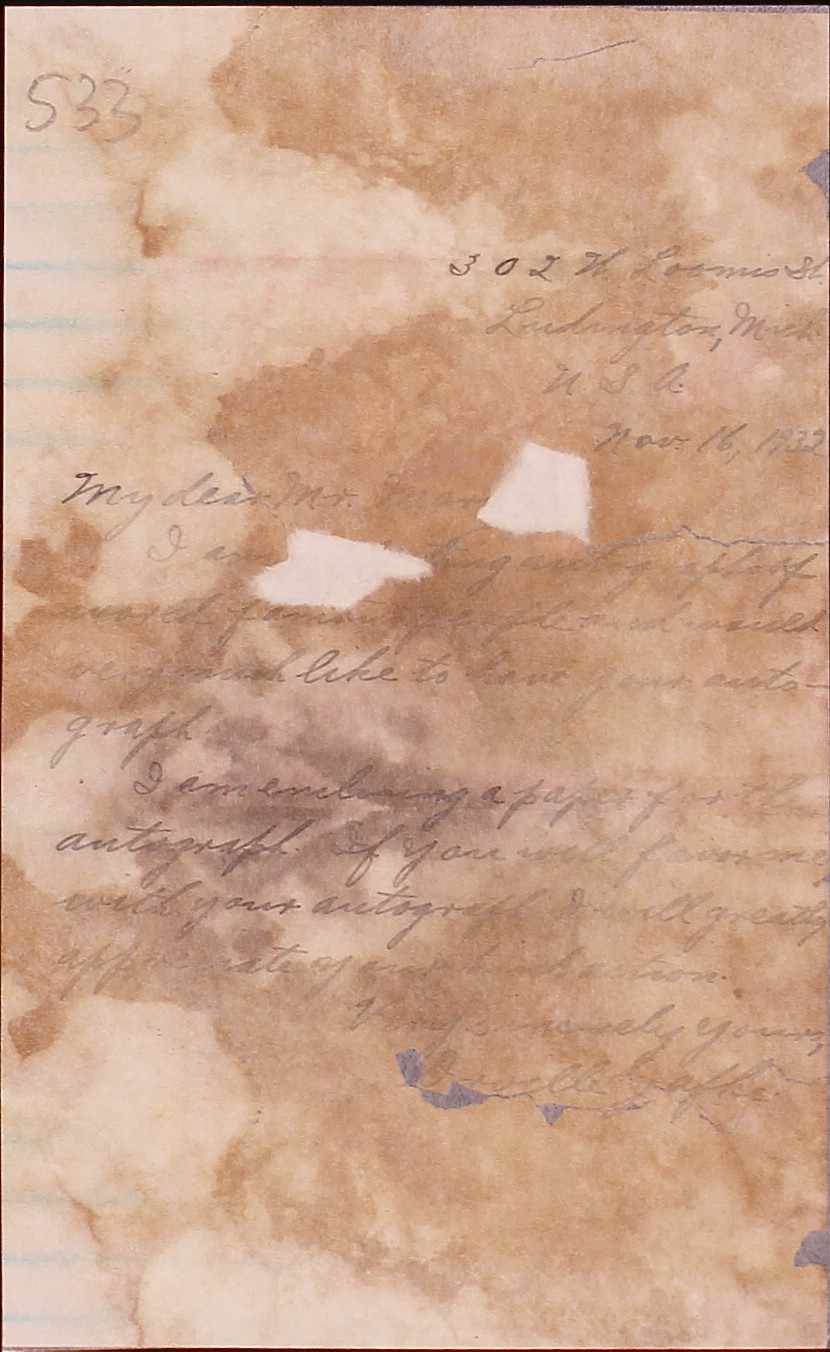 533
302 W. Loomis St.
Ludington, Mich.
U S A.
Nov. 16, 1932
My dear Mr.
I am ting autographs of
famous people and would
very much like to have your auto-
graph.
I am enclosing a paper for the
autograph. If you will favor me
with your autograph I will greatly
appreciate your kind action.
Very sincerely yours,
Orville